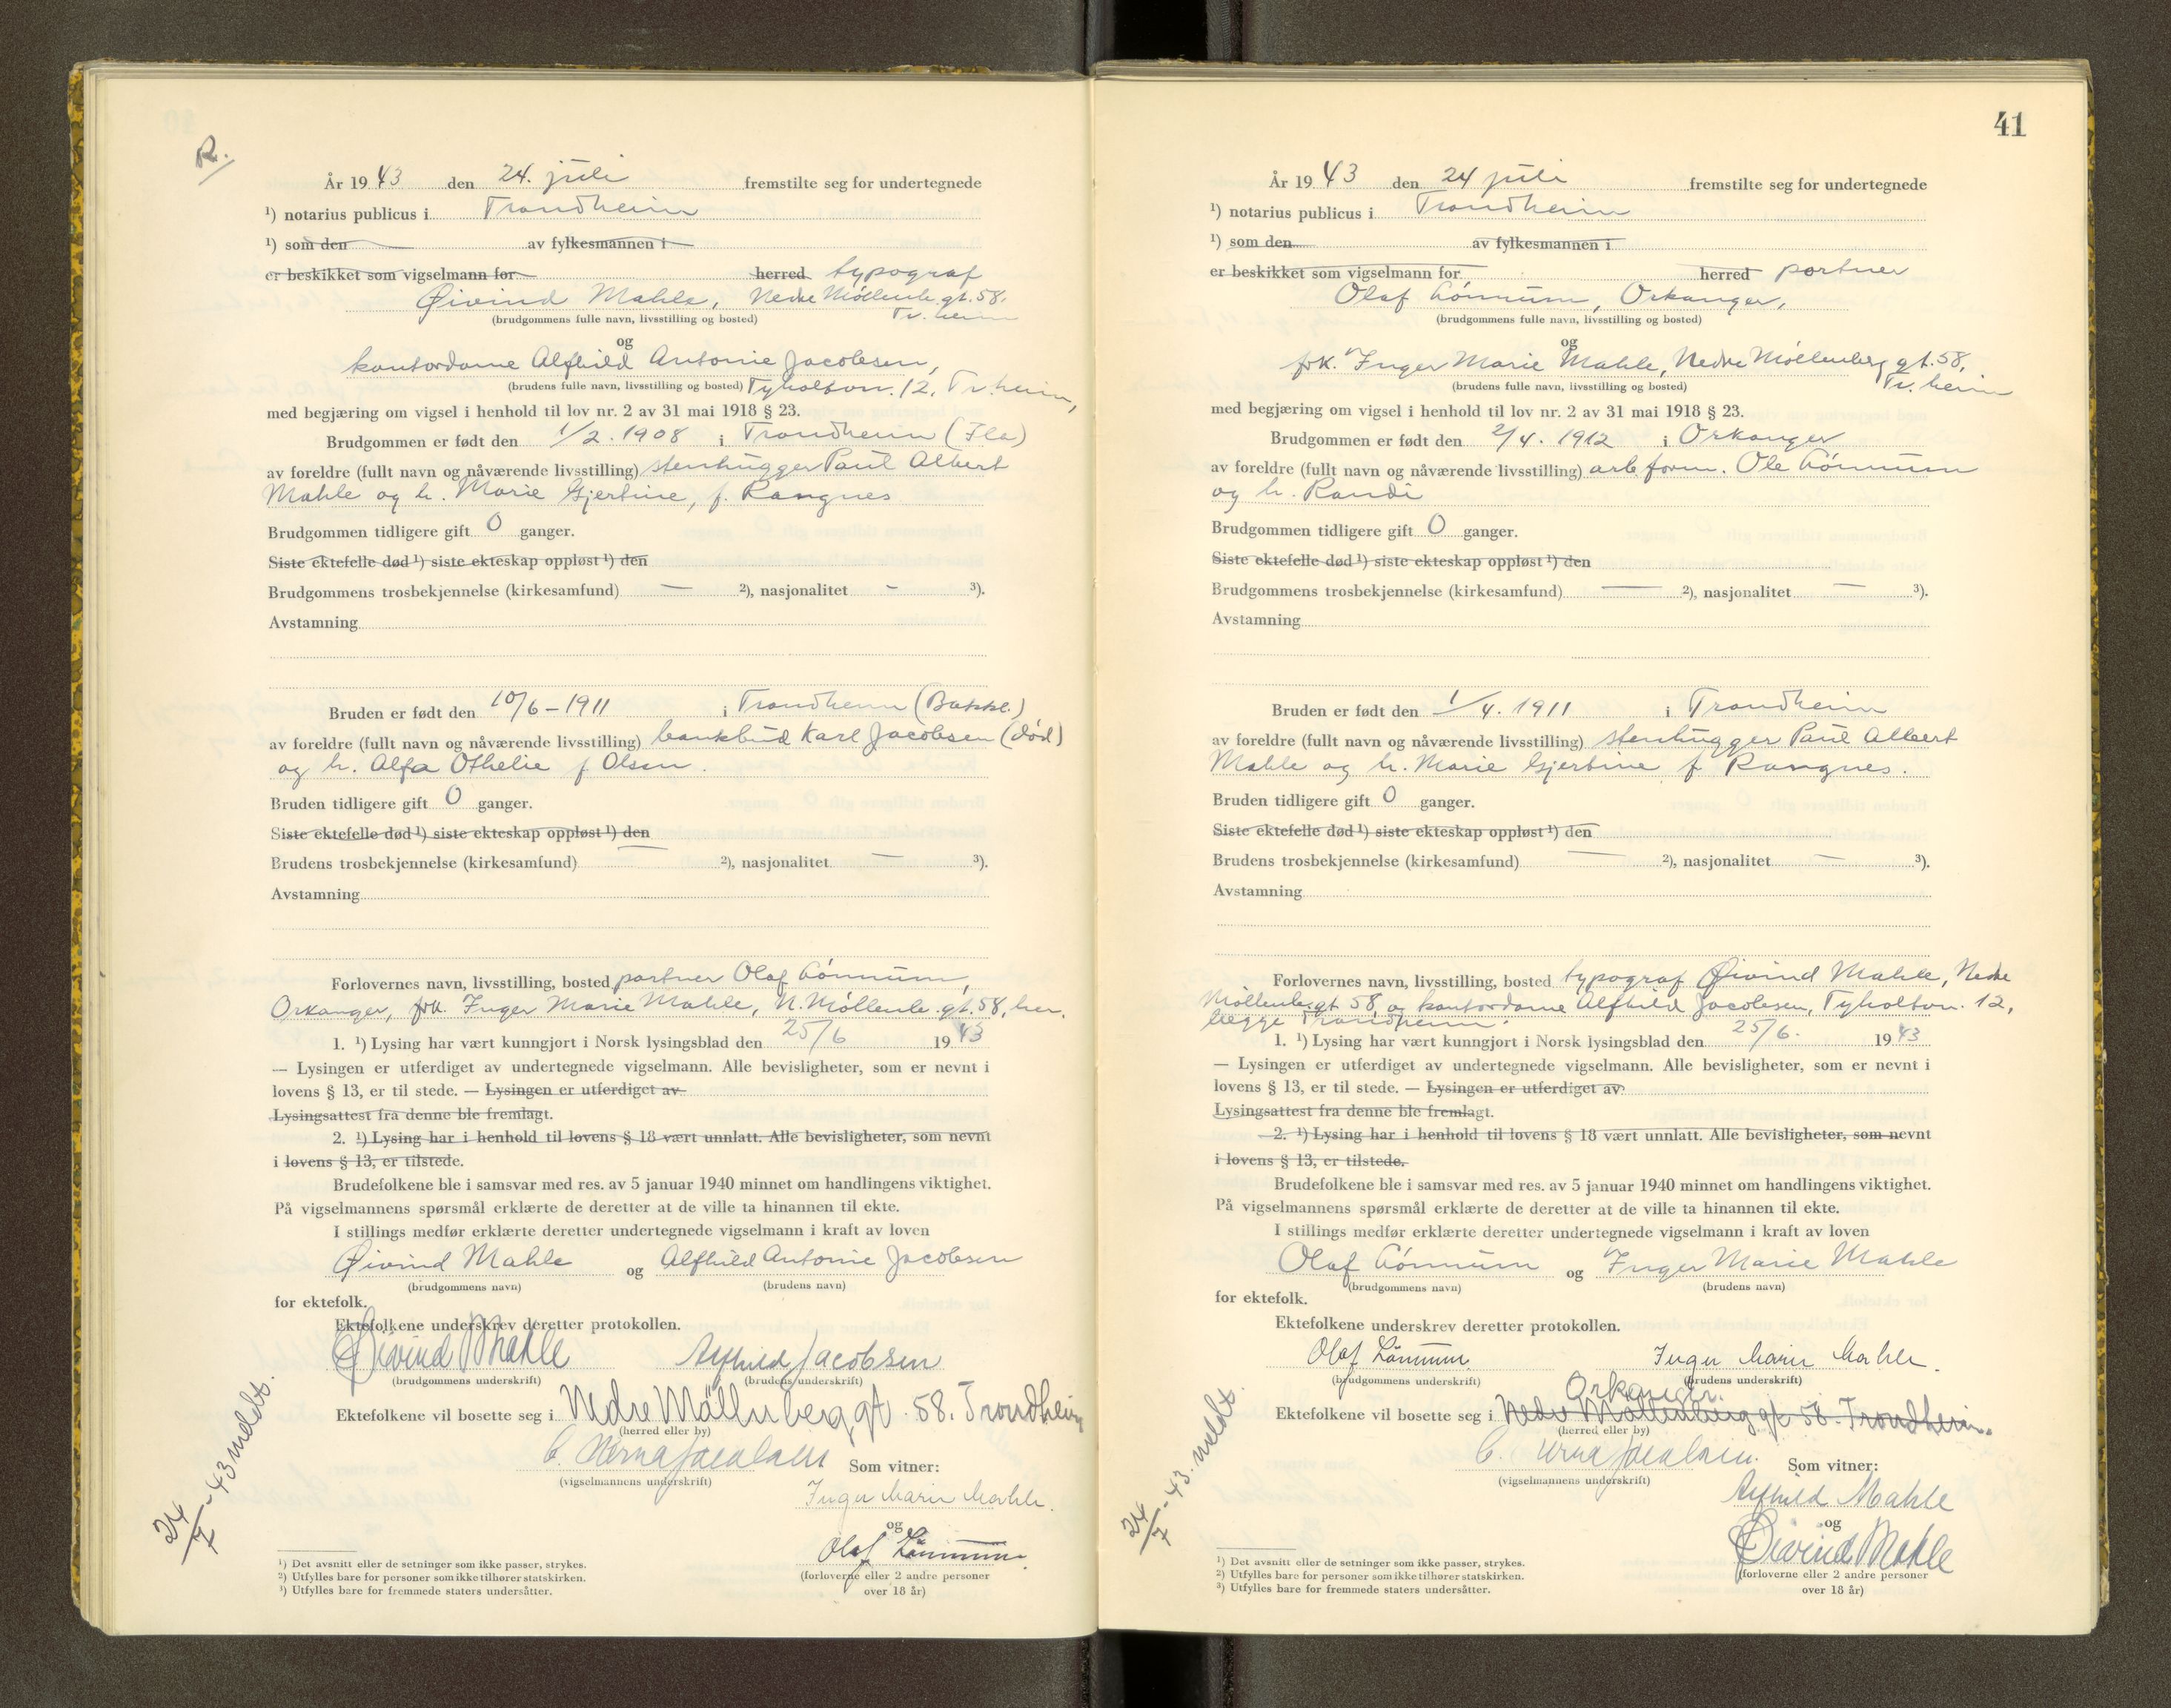 R.
År 1943 den 24. juli fremstilte seg for undertegnede
¹) notarius publicus i Trondheim
¹) som den av fylkesmannen i
er beskikket som vigselmann for herred typograf
Øivind Mahle, Nedre Möllenb. gt. 58.
Tr. heim
(brudgommens fulle navn, livsstilling og bosted)
og
kontordame Alfhild Antonie Jacobsen,
(brudens fulle navn, livsstilling og bosted) Tyholtvn. 12, Tr. heim,
med begjæring om vigsel i henhold til lov nr. 2 av 31 mai 1918 § 23.
Brudgommen er født den 1/2. 1908 i Trondheim (Ila)
av foreldre (fullt navn og nåværende livsstilling) stenhugger Paul Albert
Mahle og h. Marie Gjertine, f. Rangnes
Brudgommen tidligere gift 0 ganger.
Siste ektefelle død ¹) siste ekteskap oppløst ¹) den
Brudgommens trosbekjennelse (kirkesamfund) — ²), nasjonalitet - ³).
Avstamning
Bruden er født den 10/6 – 1911 i Trondheim (Bakkl.)
av foreldre (fullt navn og nåværende livsstilling) bankbud Karl Jacobsen (död)
og h. Alfa Othelie f Olsen.
Bruden tidligere gift 0 ganger.
Siste ektefelle død ¹) siste ekteskap oppløst ¹) den
Brudens trosbekjennelse (kirkesamfund) — ²), nasjonalitet — ³).
Avstamning
Forlovernes navn, livsstilling, bosted portner Olaf Lönnum,
Orkanger, frk. Inger Marie Mahle, N. Möllenb. gt. 58, her.
1. ¹) Lysing har vært kunngjort i Norsk lysingsblad den 25/6 1943
— Lysingen er utferdiget av undertegnede vigselmann. Alle bevisligheter, som er nevnt i
lovens § 13, er til stede. — Lysingen er utferdiget av
Lysingsattest fra denne ble fremlagt.
2. ¹) Lysing har i henhold til lovens § 18 vært unnlatt. Alle bevisligheter, som nevnt
i lovens § 13, er tilstede.
Brudefolkene ble i samsvar med res. av 5 januar 1940 minnet om handlingens viktighet.
På vigselmannens spørsmål erklærte de deretter at de ville ta hinannen til ekte.
I stillings medfør erklærte deretter undertegnede vigselmann i kraft av loven
Øivind Mahle og Alfhild Antonie Jacobsen
(brudgommens navn) (brudens navn)
for ektefolk.
Ektefolkene underskrev deretter protokollen.
Øivind Mahle Alfhild Jacobsen
(brudgommens underskrift) (brudens underskrift)
Ektefolkene vil bosette seg i Nedre Möllenberg gt. 58. Trondheim
(herred eller by)
C. Jacobsen
(vigselmannens underskrift) Som vitner:
Inger Marie Mahle.
og
Olaf Lönnum
(forloverne eller 2 andre personer
over 18 år)
24/7-43 meldt.
¹) Det avsnitt eller de setninger som ikke passer, strykes.
²) Utfylles bare for personer som ikke tilhører statskirken.
³) Utfylles bare for fremmede staters undersåtter.
41
År 1943 den 24 juli fremstilte seg for undertegnede
¹) notarius publicus i Trondheim
¹) som den av fylkesmannen i
er beskikket som vigselmann for herred portner
Olaf Lönnum, Orkanger,
(brudgommens fulle navn, livsstilling og bosted)
og
frk. Inger Marie Mahle, Nedre Möllenberg gt. 58,
Tr. heim
(brudens fulle navn, livsstilling og bosted)
med begjæring om vigsel i henhold til lov nr. 2 av 31 mai 1918 § 23.
Brudgommen er født den 2/4. 1912 i Orkanger
av foreldre (fullt navn og nåværende livsstilling) arb. form. Ole Lönnum
og h. Randi
Brudgommen tidligere gift 0 ganger.
Siste ektefelle død ¹) siste ekteskap oppløst ¹) den
Brudgommens trosbekjennelse (kirkesamfund) — ²), nasjonalitet — ³).
Avstamning
Bruden er født den 1/4. 1911 i Trondheim
av foreldre (fullt navn og nåværende livsstilling) stenhugger Paul Albert
Mahle og h. Marie Gjertine f Rangnes.
Bruden tidligere gift 0 ganger.
Siste ektefelle død ¹) siste ekteskap oppløst ¹) den
Brudens trosbekjennelse (kirkesamfund) — ²), nasjonalitet — ³).
Avstamning
Forlovernes navn, livsstilling, bosted typograf Øivind Mahle, Nedre
Möllenb. gt 58, og kontordame Alfhild Jacobsen, Tyholtvn. 12,
begge Trondheim.
1. ¹) Lysing har vært kunngjort i Norsk lysingsblad den 25/6. 1943
— Lysingen er utferdiget av undertegnede vigselmann. Alle bevisligheter, som er nevnt i
lovens § 13, er til stede. — Lysingen er utferdiget av
Lysingsattest fra denne ble fremlagt.
2. ¹) Lysing har i henhold til lovens § 18 vært unnlatt. Alle bevisligheter, som nevnt
i lovens § 13, er tilstede.
Brudefolkene ble i samsvar med res. av 5 januar 1940 minnet om handlingens viktighet.
På vigselmannens spørsmål erklærte de deretter at de ville ta hinannen til ekte.
I stillings medfør erklærte deretter undertegnede vigselmann i kraft av loven
Olaf Lönnum og Inger Marie Mahle
(brudgommens navn) (brudens navn)
for ektefolk.
Ektefolkene underskrev deretter protokollen.
Olaf Lönnum Inger Marie Mahle.
(brudgommens underskrift) (brudens underskrift)
Orkanger.
Ektefolkene vil bosette seg i Nedre Möllenberg gt 58. Trondheim.
(herred eller by)
C. Jacobsen.
(vigselmannens underskrift) Som vitner:
Alfhild Mahle
og
Øivind Mahle
(forloverne eller 2 andre personer
over 18 år)
24/7-43. meldt.
¹) Det avsnitt eller de setninger som ikke passer, strykes.
²) Utfylles bare for personer som ikke tilhører statskirken.
³) Utfylles bare for fremmede staters undersåtter.